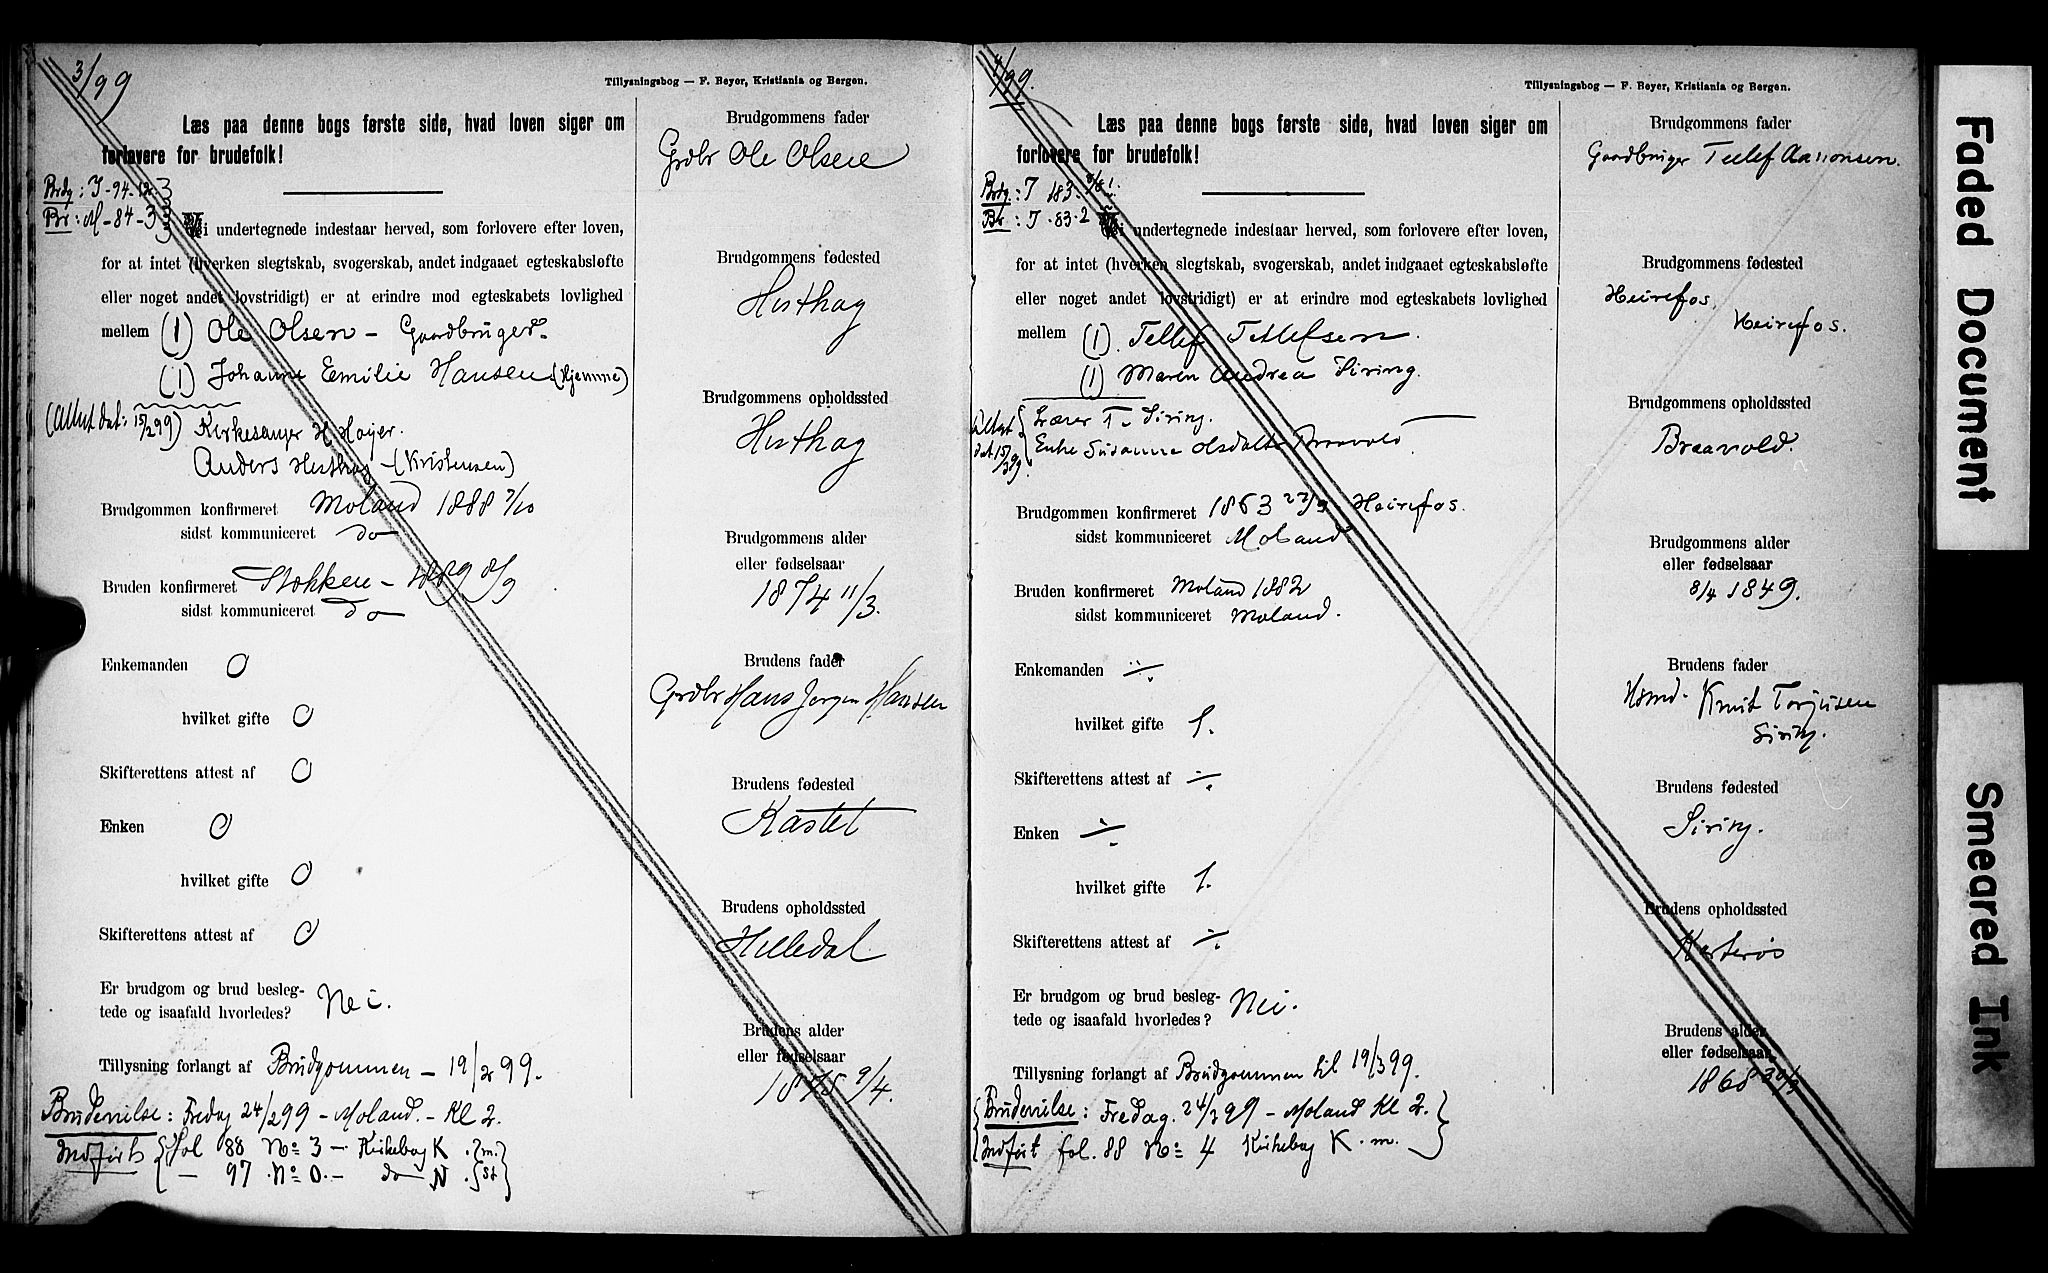 3/99
Tillysningsbog — F. Beyer, Kristiania og Bergen.
Læs paa denne bogs første side, hvad loven siger om
forlovere for brudefolk!
Brdg: J-94-12-3
Br: M-84-33
Vi undertegnede indestaar herved, som forlovere efter loven,
for at intet (hverken slegtskab, svogerskab, andet indgaaet egteskabsløfte
eller noget andet lovstridigt) er at erindre mod egteskabets lovlighed
mellem (1) Ole Olsen - Gaardbruger
(1) Johanne Emilie Hansen (Hjemme)
(Attest dat: 15/2 99) Kirkesanger H. Høyer.
Anders Hesthag - (Kristensen)
Brudgommen konfirmeret Moland 1888 7/10
sidst kommuniceret do
Bruden konfirmeret Stokken - 1889 8/9
sidst kommuniceret do
Enkemanden 0
hvilket gifte 0
Skifterettens attest af 0
Enken 0
hvilket gifte 0
Skifterettens attest af 0
Er brudgom og brud besleg-
tede og isaafald hvorledes? Nei.
Tillysning forlangt af Brudgommen - 19/2 99.
Brudevielse: Fredag 24/2 99 - Moland. - Kl 2.
Indført {fol 88 No 3 - Kirkebog K. {m.}
- 97 No 0. - do N. {St}
Brudgommens fader
Grdbr Ole Olsen
Brudgommens fødested
Hesthag
Brudgommens opholdssted
Hesthag
Brudgommens alder
eller fødselsaar
1874 11/3.
Brudens fader
Grdbr Hans Jørgen Hansen
Brudens fødested
Kastet
Brudens opholdssted
Helledal
Brudens alder
eller fødselsaar
1875 9/4.
4/99.
Tillysningsbog — F. Beyer, Kristiania og Bergen.
Læs paa denne bogs første side, hvad loven siger om
forlovere for brudefolk!
Brdg: J 183.
Br: J. 83. 2
Vi undertegnede indestaar herved, som forlovere efter loven,
for at intet (hverken slegtskab, svogerskab, andet indgaaet egteskabsløfte
eller noget andet lovstridigt) er at erindre mod egteskabets lovlighed
mellem (1). Tellef Tellefsen.
(1) Maren Andrea Siring.
Attest dat 15/3 99. {Lærer T. Siring.
Enke Susanne Braavold
Brudgommen konfirmeret 1863 27/9 Heirefos.
sidst kommuniceret Moland
Bruden konfirmeret Moland 1882
sidst kommuniceret Moland.
Enkemanden ÷
hvilket gifte 1.
Skifterettens attest af ÷
Enken ÷
hvilket gifte 1.
Skifterettens attest af ÷
Er brudgom og brud besleg-
tede og isaafald hvorledes? Nei.
Tillysning forlangt af Brudgommen til 19/3 99.
{Brudevielse: Fredag. 24/3 99 - Moland Kl 2.}
{Indført fol. 88 No 4 Kirkebog K. m.}
Brudgommens fader
Gaardbruger Tellef Aanonsen.
Brudgommens fødested
Heirefos.
Heirefos.
Brudgommens opholdssted
Braavold.
Brudgommens alder
eller fødselsaar
8/4 1849.
Brudens fader
Hsmd. Knut Torjusen
Siring.
Brudens fødested
Siring.
Brudens opholdssted
Brudens alder
eller fødselsaar
1868
Faded Document
Smeared Ink